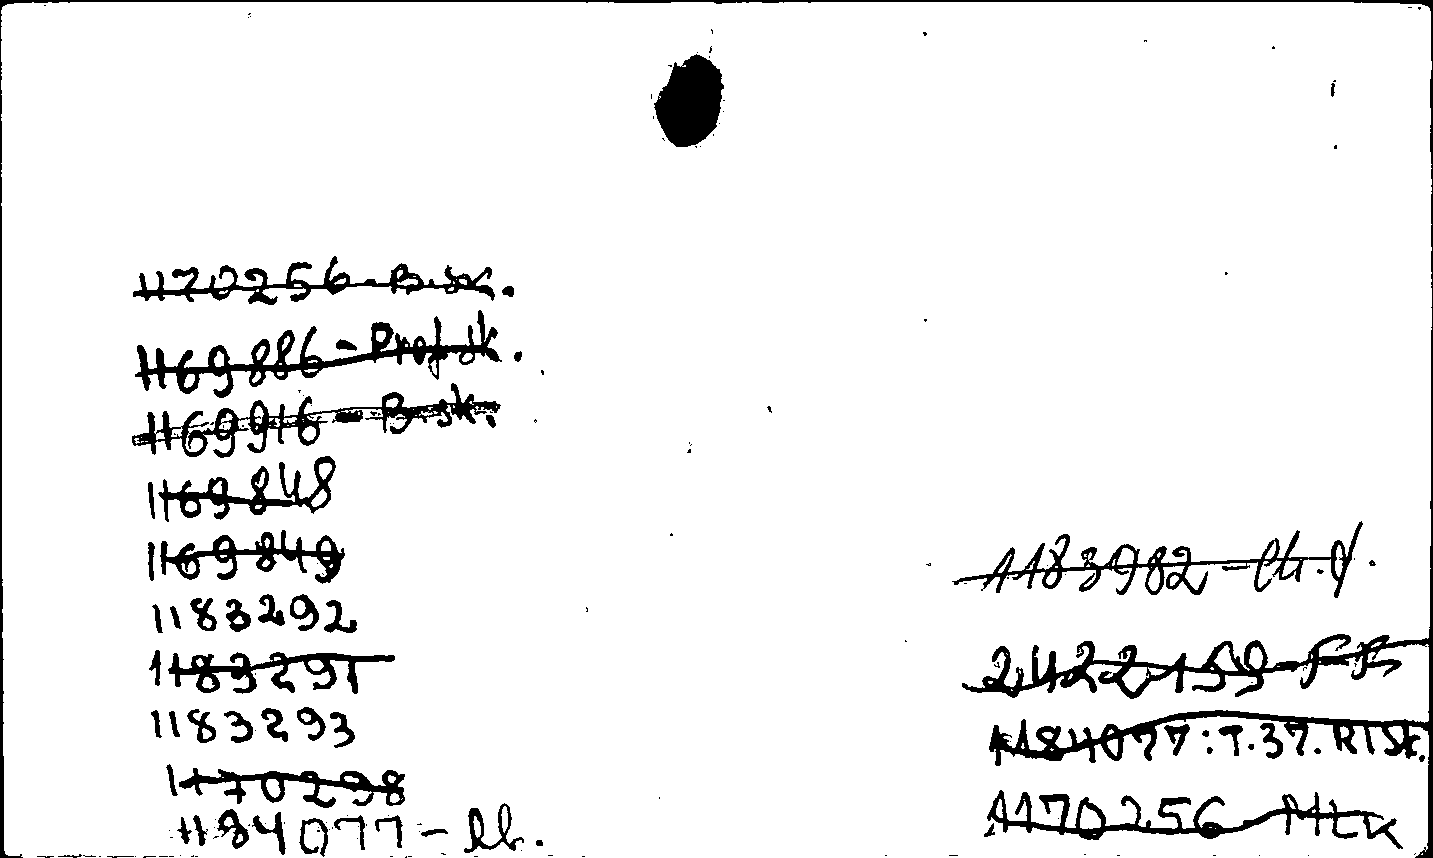 1170256-B.sk.
1169886-Prof.sk.
1169916-B.sk.
1169848
1169849
1183292
1183291
1183293
1170298
1184077-
1183982-
2422159-FB
1184077:T.37.RISK.
1170256-MLK